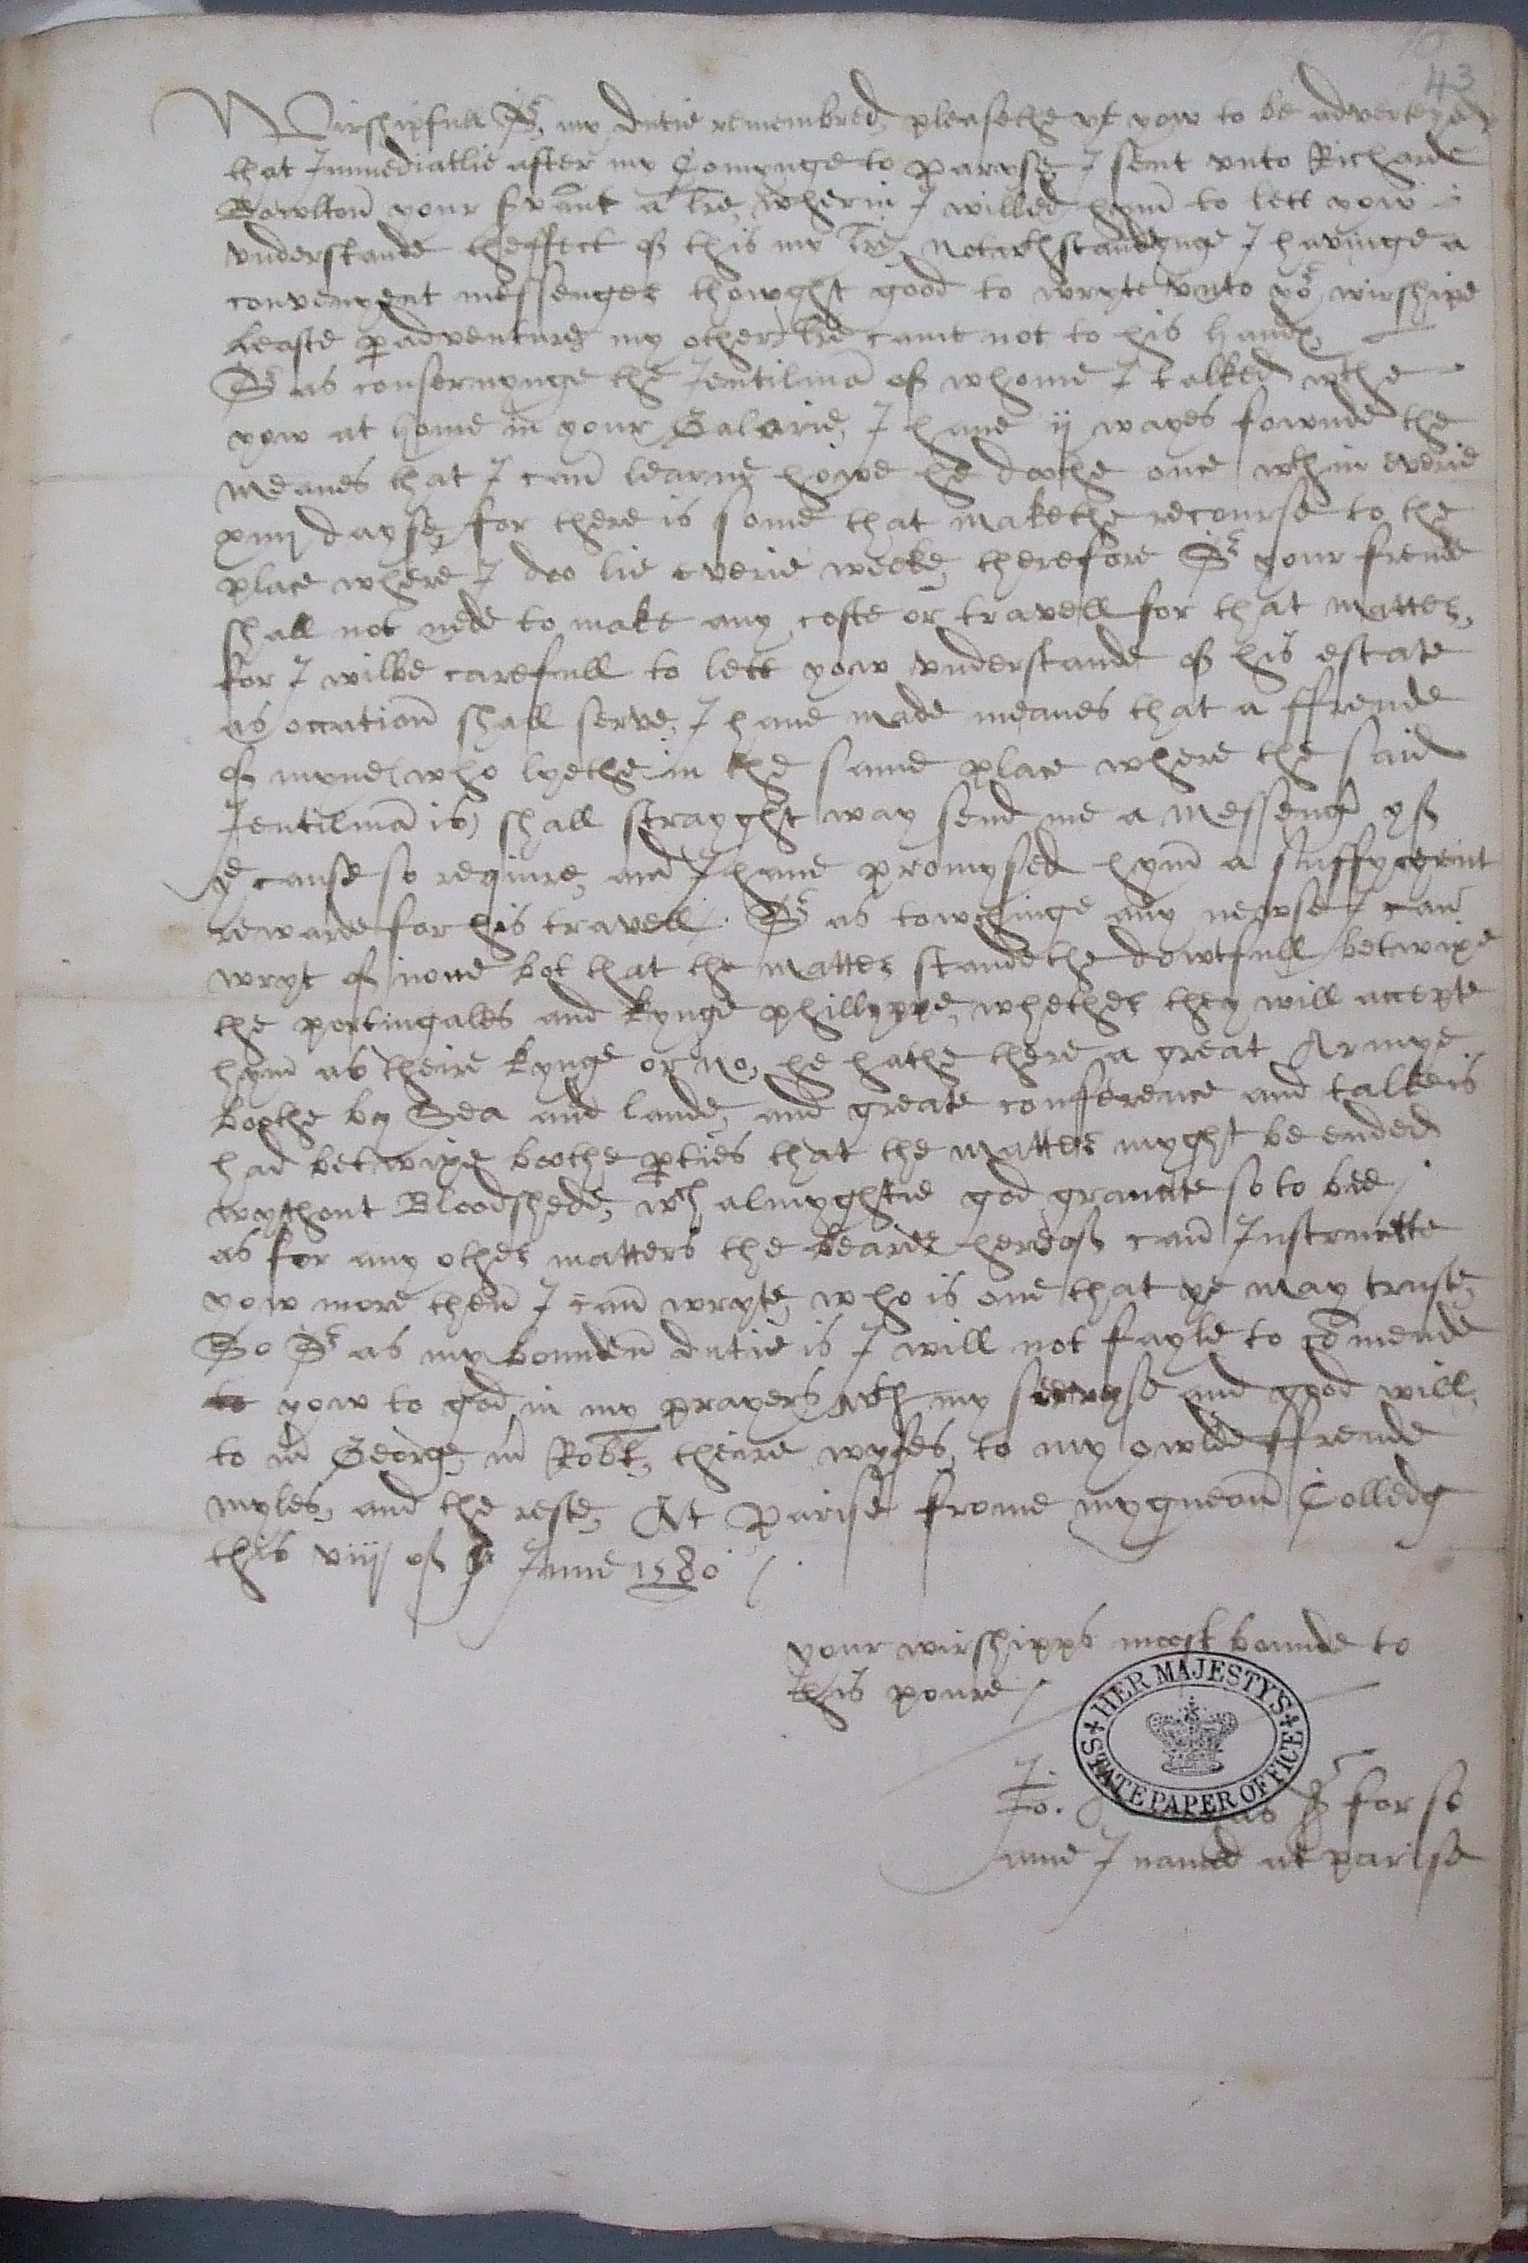 43
Wirshipfull Sr, my dutie remembred, pleasethe yt yow to be advertesed
that Immediatlie after my Comynge to paryse, I sent vnto Richarde
Bowlton your srvant a lre, wherin I willed hym to lett yow
vnderstande theffect of this my lre, notwthstandynge I havinge a
convenyent messenger thowght good to wryte vnto yor wirshipe
leaste peradventure my other lre came not to his hands
Sr as consernynge the Jentilma of whome I talked wthe
yow at home in your Galarie, I haue ij wayes fownde the
meanes that I can learne howe he doothe once wthin everie
xiiij dayse, for there is some that makethe recourse to the
place where I doo lie everie weeke, therefore Sr your frende
shall not nede to make any coste or travell for that matter,
for I wilbe carefull to lett yow vnderstande of his estate
as occation shall serve, I haue made meanes that a ffrende
of myne (who lyethe in the same place where the said
Jentilma is) shall strayght way send me a messenger yf
ye cause so require, and I haue promysed hym a suffycyent
rewarde for his travell. Sr as towchinge any newse I can
wryt of none bot that the matter standethe dowtfull betwixe
the portingales and kynge phillyppe, whether they will accepte
hym as theire kynge or no, he hathe there a great Armye
boothe by Sea and lande, and greate conference and talke is
had betwixe boothe pties that the matter myght be ended
wythout Bloodshede, wch almyghtie god graunte so to bee
as for any other matters the bearer hereof can Instructte
yow more then I can wryte, who is one that ye may truste,
So Sr as my bounden dutie is I will not fayle to comende
yow to god in my prayers, wth my servyse and good will,
to mr George, mr Robt, theire wyfes, to my owlde ffrende
myles, and the reste, At Parise frome mygneon Colledg
this viij of June 1580
your wirshipps moost bounde to
this poure
HER MAJESTY'S STATE PAPER OFFICE
Jo. for so
ame I named at parise